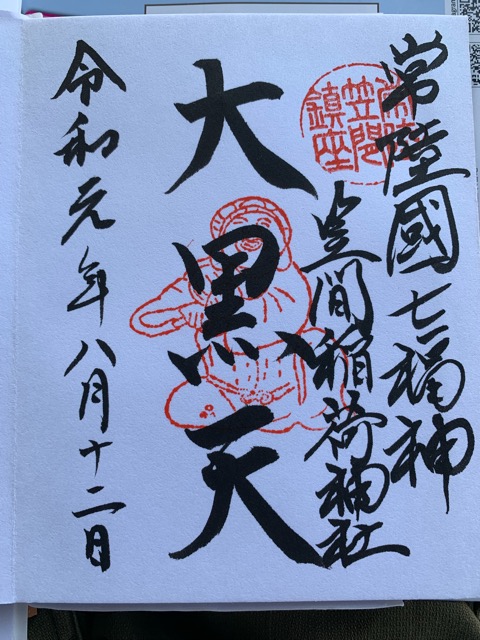 常陸國七福神
笠間稲荷神社
常陸
笠間
鎮座
大黒天
令和元年八月十二日